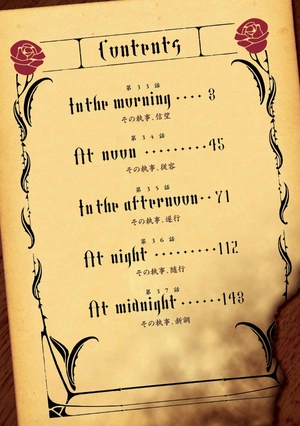 Contents
第33話
In the morning ････ 3
その執事、信望
第34話
At noon ･････････45
その執事、従容
第35話
In the afternoon･･71
その執事、遂行
第36話
At night ････････112
その執事、随行
第37話
At midnight･･････143
その執事、新調